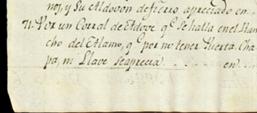 nos, y Su Aldovon de fierro apreciado en
71. Por un Corral de Adove q.e se halla en el Ran
cho del Alamo, q.e por no tener Puerta, Cha
pa, ni Llave se aprecia . . . . . . . . en